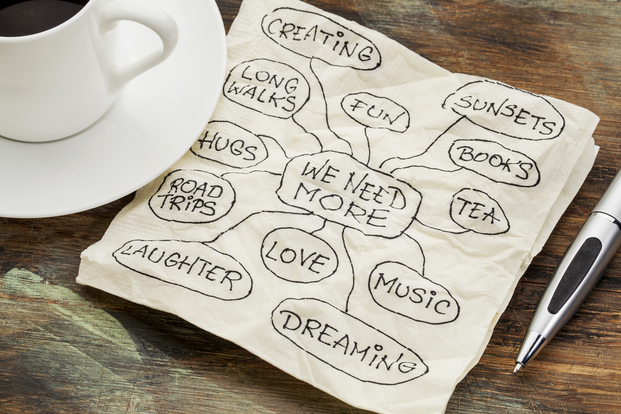 CREATING
LONG
WALKS
FUN
SUNSETS
HUGS
BOOKS
WE NEED
MORE
ROAD
TRIPS
TEA
LAUGHTER
LOVE
MUSIC
DREAMING